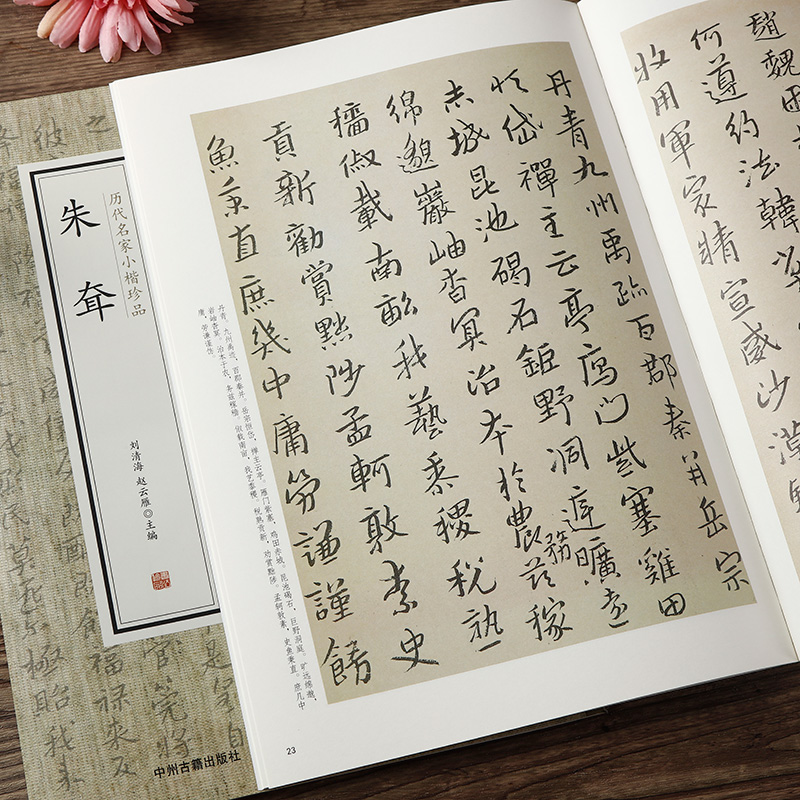 趙魏困
何遵約法韓
牧用軍最精宣威沙漠
丹青九州禹跡百郡秦并岳宗
恒岱禪主云亭鴈門紫塞雞田
赤城昆池碣石鉅野洞庭曠遠
綿邈巖岫杳冥治本於農務茲稼
穡俶載南畝我藝黍稷稅熟
貢新勸賞黜陟孟軻敦素史
魚秉直庶幾中庸勞謙謹飭
丹青。九州禹迹，百郡秦并。岳宗恒岱，禅主云亭。雁门紫塞，鸡田赤城。昆池碣石，巨野洞庭。旷远绵邈，
岩岫杳冥。治本于农，务兹稼穑。俶载南亩，我艺黍稷。税熟贡新，劝赏黜陟。孟轲敦素，史鱼秉直。庶几中
庸，劳谦谨饬。
23
历代名家小楷珍品
朱耷
刘清海 赵云雁◎主编
中州古籍出版社